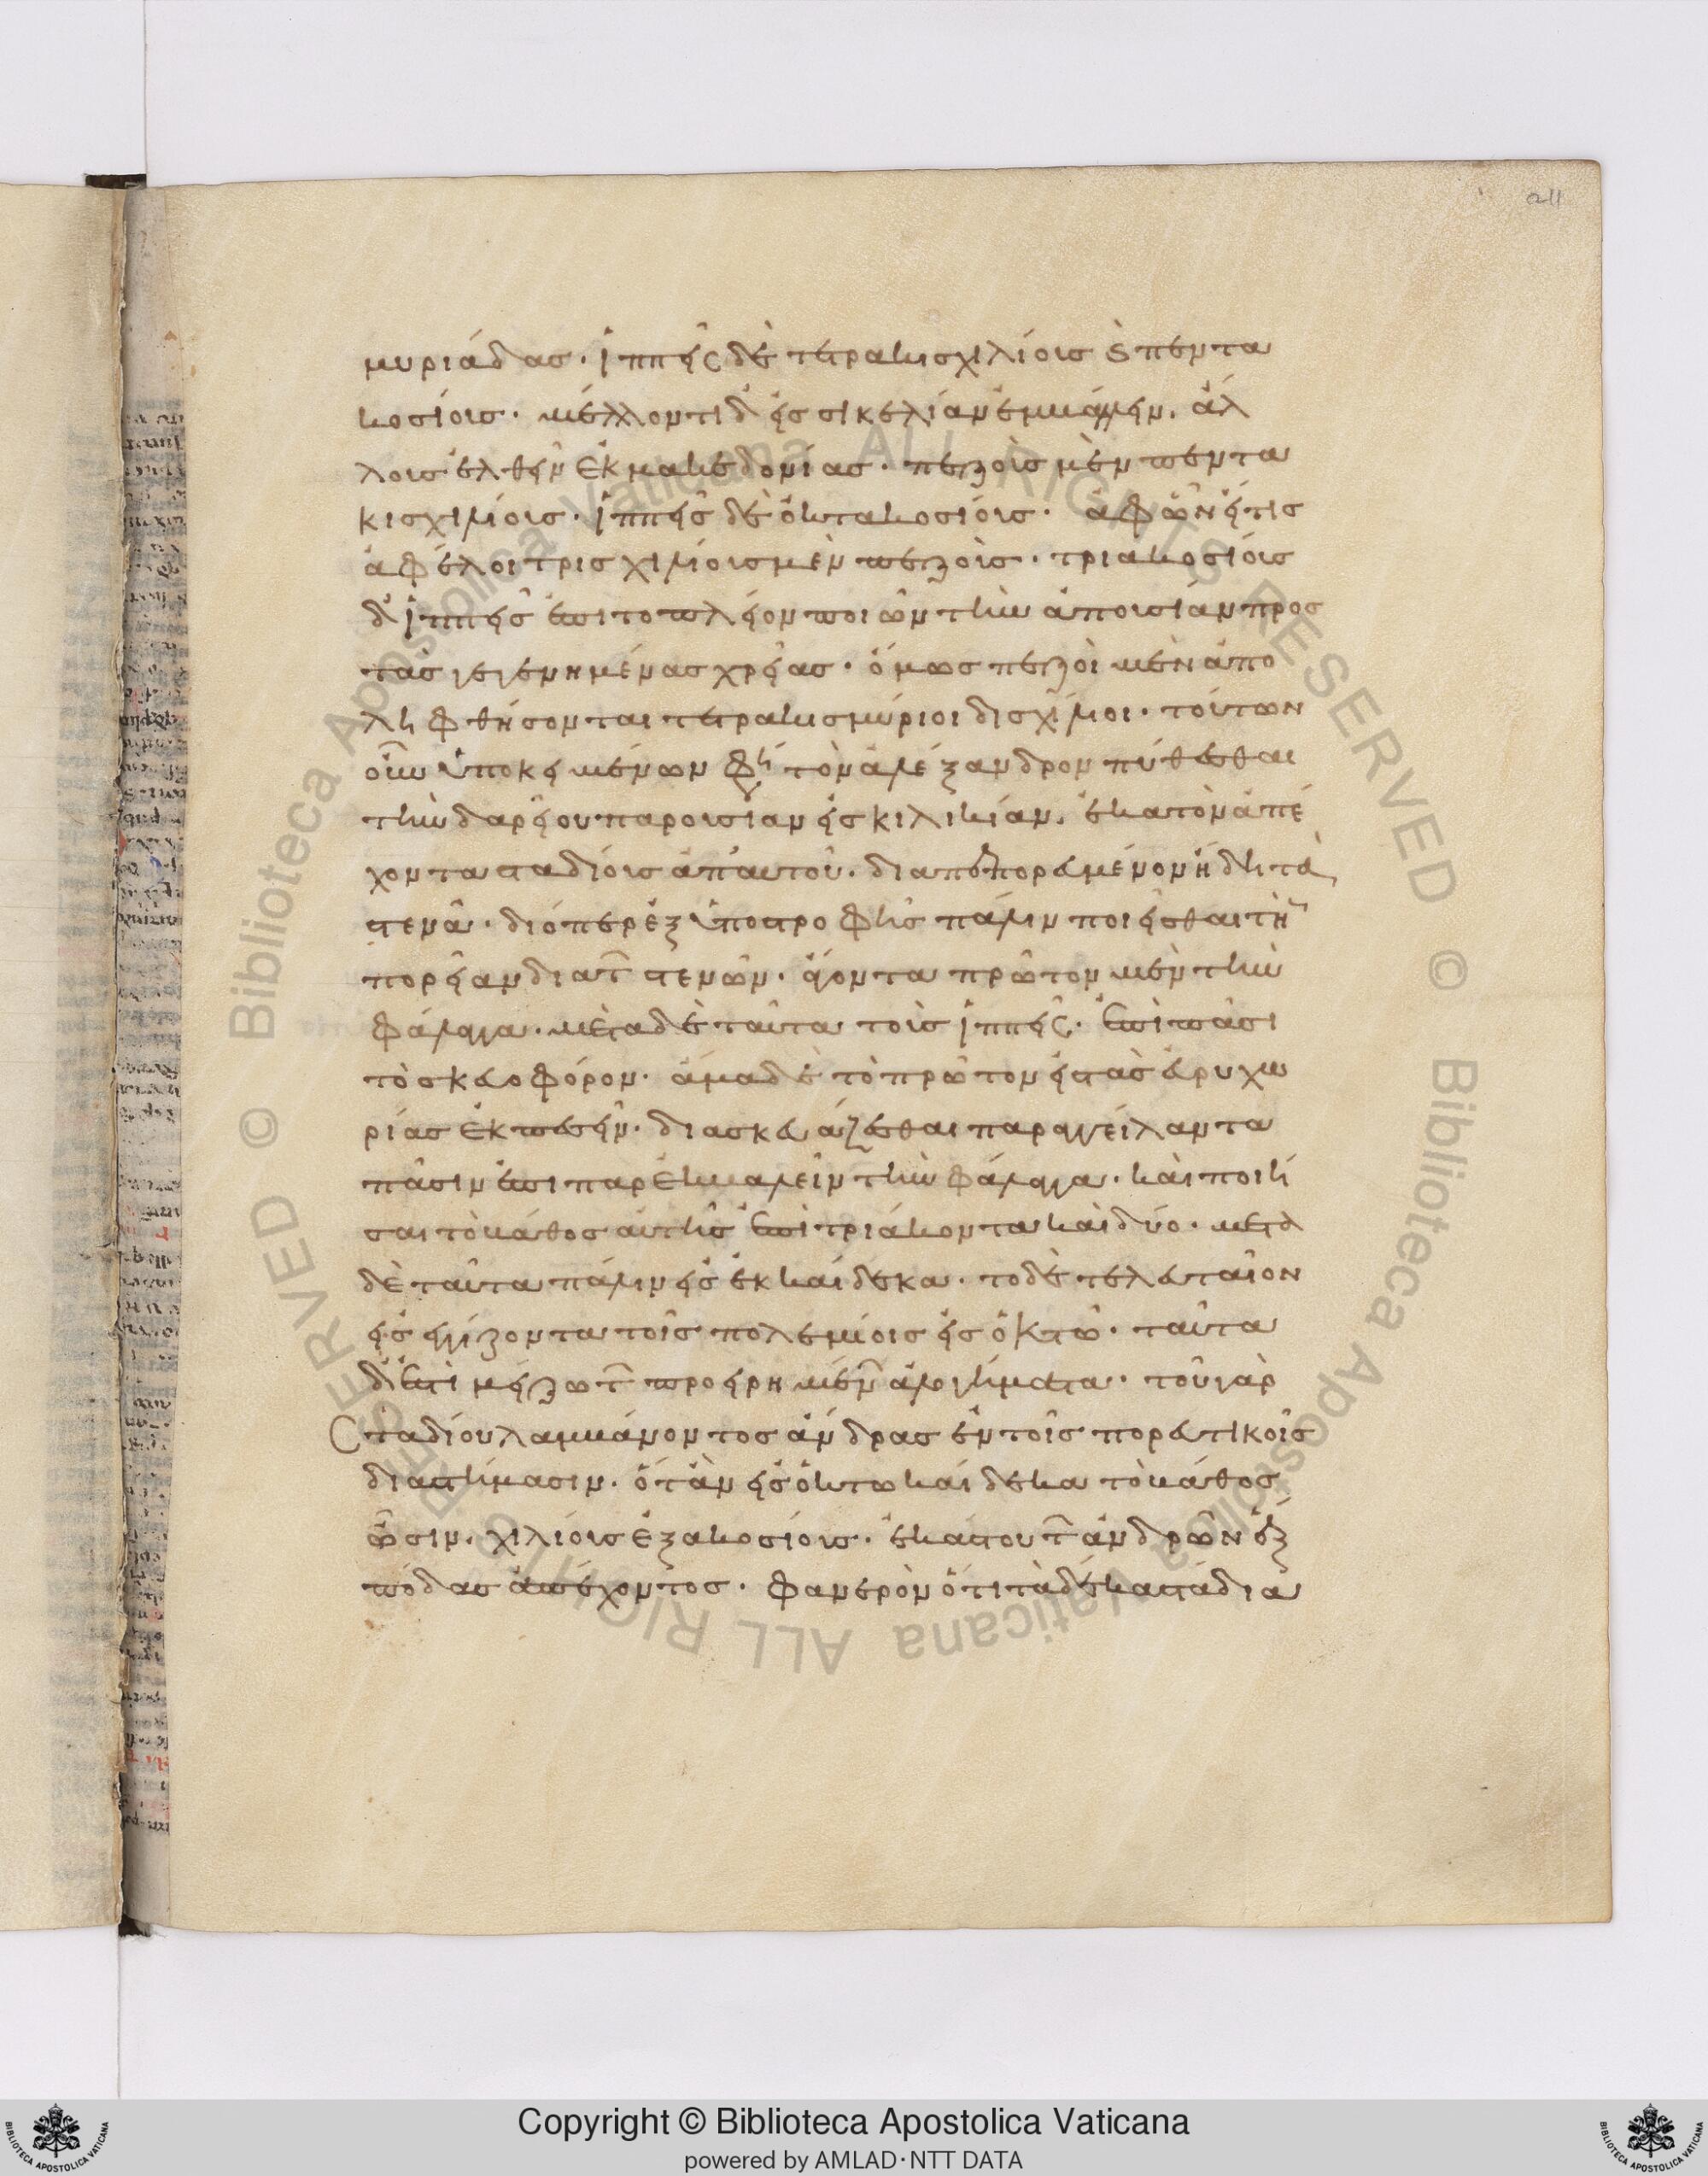 211
μυριάδας· ἱππεῖς δὲ τετρακισχιλίους ϗ πεντα
κοσίους· μέλλοντι δ' εἰς σικελίαν ἐμβάλλειν. ἄλ
λους ἐλθεῖν ἐκ μακεδονίας· πεζοὺς μὲν πεντα
κισχιλίους· ἱππεῖς δὲ ὀκτακοσίους· ἀφ' ὧν εἴ τις
ἀφέλοι τρισχιλίους μὲν πεζοὺς· τριακοσίους
δ' ἱππεῖς ἐπι το πλεῖον ποιῶν τὴν ἀπουσίαν προς
τὰς γεγενημένας χρείας· ὅμως πεζοὶ μὲν ἀπο
λειφθήσονται τετρακισμύριοι δισχίλιοι· τούτων
οὖν ὑποκειμένων φησὶ τὸν ἀλέξανδρον πυθέσθαι
τὴν δαρείου παρουσίαν εἰς κιλικίαν. ἑκατὸν ἀπέ
χοντα σταδίους ἀπ' αὐτοῦ· διαπεπορευμένον ἤδη τὰ
στενᾶ· διόπερ ἐξ ὑποστροφῆς πάλιν ποιεῖσθαι τὴν
πορείαν δια τῶν στενῶν· ἄγοντα πρῶτον μὲν τὴν
φάλαγγα· μετα δὲ ταῦτα τοὺς ἱππεῖς· ἐπὶ πᾶσι
τὸ σκευοφόρον· ἅμα δὲ τὸ πρῶτον εἰς τὰς εὐρυχω
ρίας ἐκπεσεῖν· διασκευάζεσθαι παραγγείλαντα
πᾶσιν ἐπιπαρεμβαλεῖν τὴν φάλαγγα· καὶ ποιῆ
σαι τὸ βάθος αὐτῆς ἐπὶ τριάκοντα καὶ δύο· μετὰ
δὲ ταῦτα πάλιν εἰς ἑκκαίδεκα· το δὲ τελευταῖον
εἰς ἐγγίζοντα τοῖς πολεμίοις εἰς ὀκτὼ· ταῦτα
δ' ἐστὶ μείζω τῶν προειρημένων ἀλογήματα· τοῦ γὰρ
Σταδίου λαμβάνοντος ἄνδρας ἐν τοῖς πορευτικοῖς
διαστήμασιν· ὅτ' ἂν εἰς ὀκτωκαίδεκα τὸ βάθος
ὦσιν. χιλίους ἑξακοσίους· ἑκάστου τῶν ἀνδρῶν ἓξ
πόδας ἀπέχοντος· φανερὸν ὅτι τὰ δέκα στάδια
Copyright © Biblioteca Apostolica Vaticana
powered by AMLAD·NTT DATA